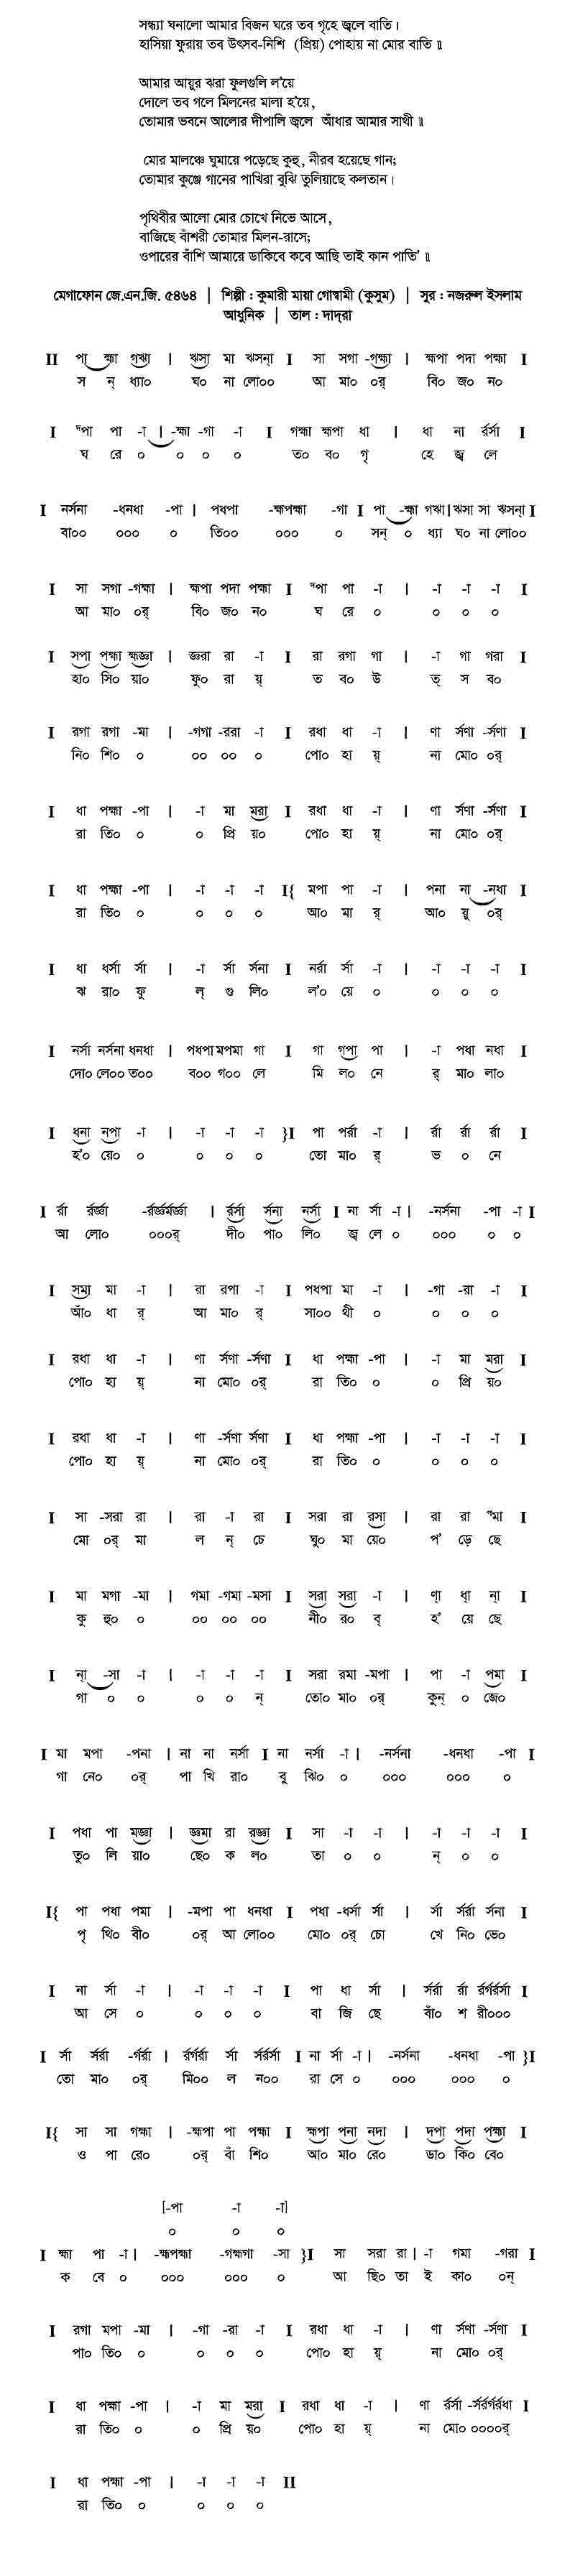 সন্ধ্যা ঘনালো আমার বিজন ঘরে তব গৃহে জ্বলে বাতি।
হাসিয়া ফুরায় তব উৎসব-নিশি (প্রিয়) পোহায় না মোর বাতি ॥
আমার আয়ুর ঝরা ফুলগুলি ল'য়ে
দোলে তব গলে মিলনের মালা হ'য়ে,
তোমার ভবনে আলোর দীপালি জ্বলে আঁধার আমার সাথী ॥
মোর মালঞ্চে ঘুমায়ে পড়েছে কুহু, নীরব হয়েছে গান;
তোমার কুঞ্জে গানের পাখিরা বুঝি তুলিয়াছে কলতান।
পৃথিবীর আলো মোর চোখে নিভে আসে,
বাজিছে বাঁশরী তোমার মিলন-রাসে;
ওপারের বাঁশি আমারে ডাকিবে কবে আছি তাই কান পাতি' ॥
মেগাফোন জে.এন.জি. ৫৪৬৪ | শিল্পী : কুমারী মায়া গোস্বামী (কুসুম) | সুর : নজরুল ইসলাম
আধুনিক | তাল : দাদ্‌রা
II পা হ্মা গঋা | ঋসা মা ঋসন্া I সা সগা -গহ্মা | হ্মপা পদা পহ্মা I
স ন্ ধ্যা০ ঘ০ না লো০০ আ মা০ ০র্ বি০ জ০ ন০
I পা পা -া | -হ্মা -গা -া I গহ্মা হ্মপা ধা | ধা না র্রর্সা I
ঘ রে ০ ০ ০ ০ ত০ ব০ গৃ হে জ্ব লে
I নর্সনা -ধনধা -পা | পধপা -হ্মপহ্মা -গা I পা -হ্মা গঋা | ঋসা সা ঋসন্া I
বা০০ ০০০ ০ তি০০ ০০০ ০ সন্ ০ ধ্যা ঘ০ না লো০০
I সা সগা -গহ্মা | হ্মপা পদা পহ্মা I পা পা -া | -া -া -া I
আ মা০ ০র্ বি০ জ০ ন০ ঘ রে ০ ০ ০ ০
I সপা পহ্মা হ্মজ্ঞা | জ্ঞরা রা -া I রা রগা গা | -া গা গরা I
হা০ সি০ য়া০ ফু০ রা য়্ ত ব০ উ ত্ স ব০
I রগা রগা -মা | -গগা -ররা -া I রধা ধা -া | ণা র্সণা -র্সণা I
নি০ শি০ ০ ০০ ০০ ০ পো০ হা য়্ না মো০ ০র্
I ধা পহ্মা -পা | -া মা মরা I রধা ধা -া | ণা র্সণা -র্সণা I
রা তি০ ০ ০ প্রি য়০ পো০ হা য়্ না মো০ ০র্
I ধা পহ্মা -পা | -া -া -া I{ মপা পা -া | পনা না -নধা I
রা তি০ ০ ০ ০ ০ আ০ মা র্ আ০ য়ু ০র্
I ধা ধর্সা র্সা | -া র্সা র্সনা I নর্রা র্সা -া | -া -া -া I
ঝ রা০ ফু ল্ গু লি০ ল'০ য়ে ০ ০ ০ ০
I নর্সা নর্সনা ধনধা | পধপা মপমা গা I গা গপা পা | -া পধা নধা I
দো০ লে০০ ত০০ ব০০ গ০০ লে মি ল০ নে র্ মা০ লা০
I ধনা নপা -া | -া -া -া }I পা পর্রা -া | র্রা র্রা র্রা I
হ'০ য়ে০ ০ ০ ০ ০ তো মা০ র্ ভ ০ নে
I র্রা র্রর্জ্ঞা -র্রর্জ্ঞর্মর্জ্ঞা | র্রর্সা র্সনা নর্সা I না র্সা -া | -নর্সনা -পা -া I
আ লো০ ০০০র্ দী০ পা০ লি০ জ্ব লে ০ ০০০ ০ ০
I সমা মা -া | রা রপা -া I পধপা মা -া | -গা -রা -া I
আঁ০ ধা র্ আ মা০ র্ সা০০ থী ০ ০ ০ ০
I রধা ধা -া | ণা র্সণা -র্সণা I ধা পহ্মা -পা | -া মা মরা I
পো০ হা য়্ না মো০ ০র্ রা তি০ ০ ০ প্রি য়০
I রধা ধা -া | ণা -র্সণা র্সণা I ধা পহ্মা -পা | -া -া -া I
পো০ হা য়্ না মো০ ০র্ রা তি০ ০ ০ ০ ০
I সা -সরা রা | রা -া রা I সরা রা রসা | রা রা মা I
মো ০র্ মা ল ন্ চে ঘু০ মা য়ে০ প' ড়ে ছে
I মা মগা -মা | গমা -গমা -মসা I সরা সরা -া | ণ্া ধ্া ন্া I
কু হু০ ০ ০০ ০০ ০০ নী০ র০ ব্ হ' য়ে ছে
I ন্া -সা -া | -া -া -া I সরা রমা -মপা | পা -া পমা I
গা ০ ০ ০ ০ ন্ তো০ মা০ ০র্ কুন্ ০ জে০
I মা মপা -পনা | না না নর্সা I না নর্সা -া | -নর্সনা -ধনধা -পা I
গা নে০ ০র্ পা খি রা০ বু ঝি০ ০ ০০০ ০০০ ০
I পধা পা মজ্ঞা | জ্ঞমা রা রজ্ঞা I সা -া -া | -া -া -া I
তু০ লি য়া০ ছে০ ক ল০ তা ০ ০ ন্ ০ ০
I{ পা পধা পমা | -মপা পা ধনধা I পধা -ধর্সা র্সা | র্সা র্সর্রা র্সনা I
পৃ থি০ বী০ ০র্ আ লো০০ মো০ ০র্ চো খে নি০ ভে০
I না র্সা -া | -া -া -া I পা ধা র্সা | র্সর্রা র্রা র্রর্গর্রর্সা I
আ সে ০ ০ ০ ০ বা জি ছে বাঁ০ শ রী০০০
I র্সা র্সর্রা -র্গর্রা | র্রর্গর্রা র্সা র্সর্রর্সা I না র্সা -া | -নর্সনা -ধনধা -পা }I
তো মা০ ০র্ মি০০ ল ন০০ রা সে ০ ০০০ ০০০ ০
I{ সা সা গহ্মা | -হ্মপা পা পহ্মা I হ্মপা পনা নদা | দপা পদা পহ্মা I
ও পা রে০ ০র্ বাঁ শি০ আ০ মা০ রে০ ডা০ কি০ বে০
[-পা -া -া]
০ ০ ০
I হ্মা পা -া | -হ্মপহ্মা -গহ্মগা -সা }I সা সরা রা | -া গমা -গরা I
ক বে ০ ০০০ ০০০ ০ আ ছি০ তা ই কা০ ০ন্
I রগা মপা -মা | -গা -রা -া I রধা ধা -া | ণা র্সণা -র্সণা I
পা০ তি০ ০ ০ ০ ০ পো০ হা য়্ না মো০ ০র্
I ধা পহ্মা -পা | -া মা মরা I রধা ধা -া | ণা র্রর্সা -র্সর্রর্গর্রধা I
রা তি০ ০ ০ প্রি য়০ পো০ হা য়্ না মো০ ০০০০র্
I ধা পহ্মা -পা | -া -া -া II
রা তি০ ০ ০ ০ ০